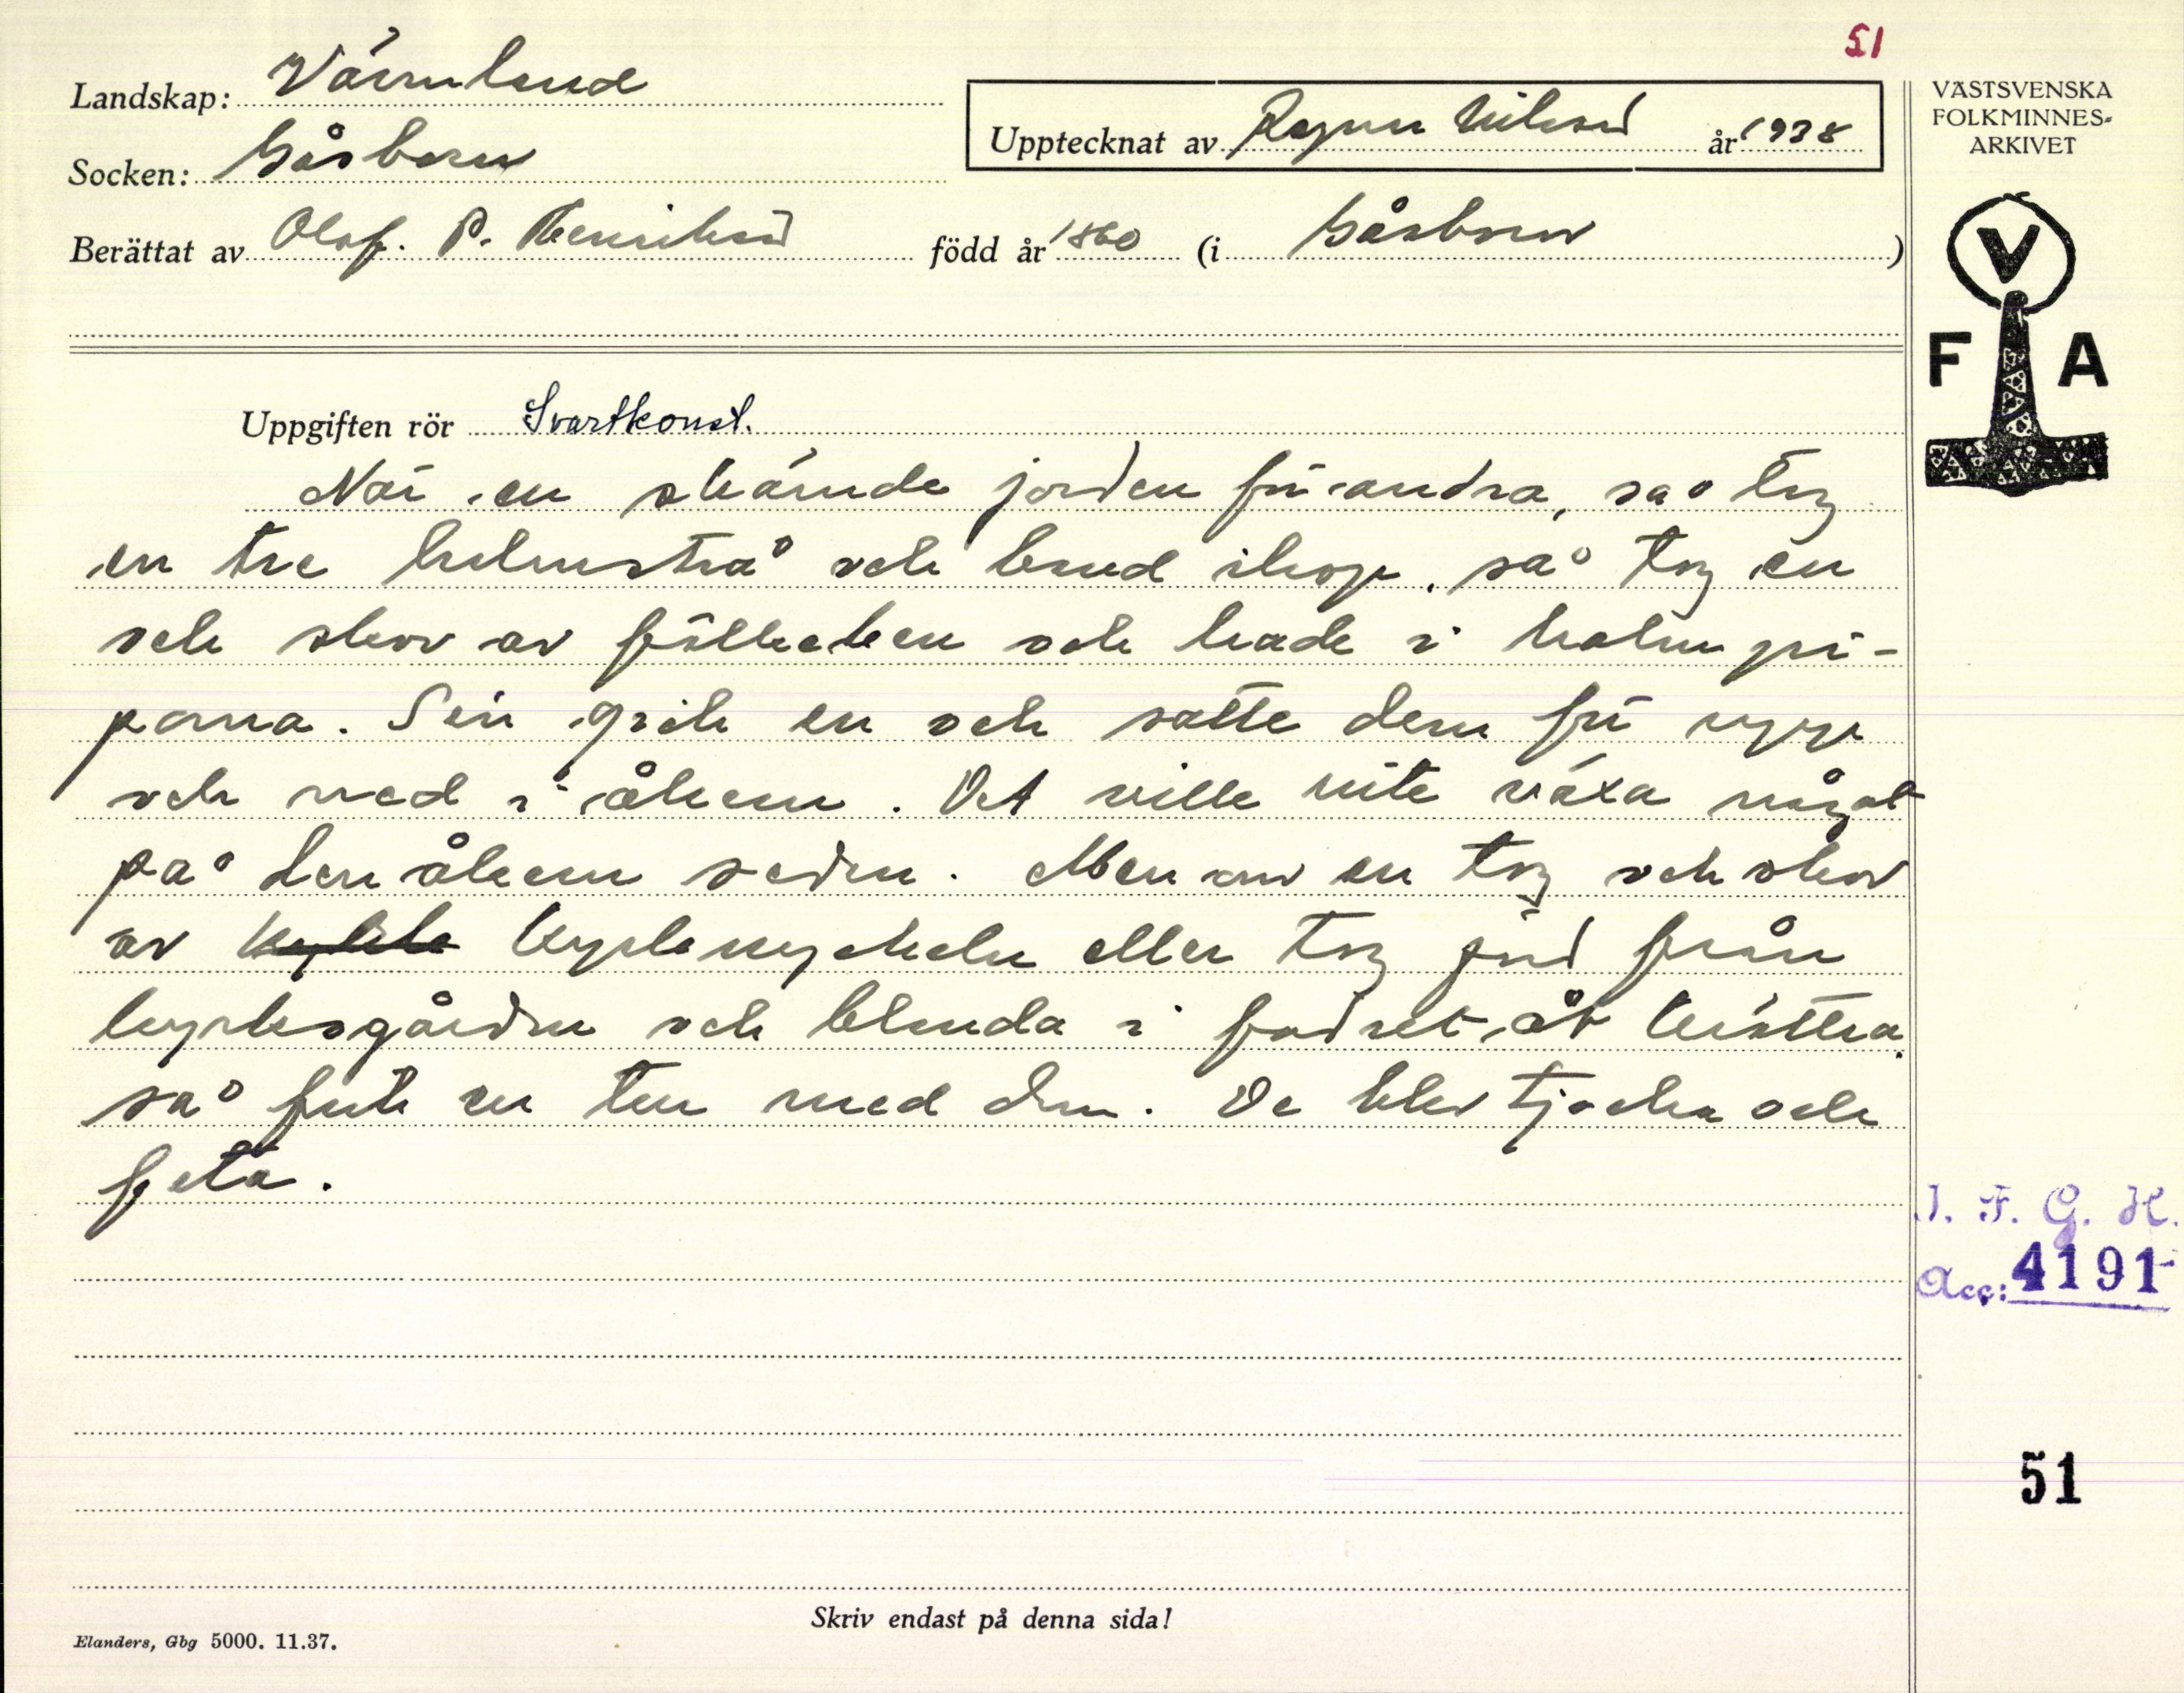 51
Landskap: Värmland
Socken: Gåsborn
Upptecknat av Ragnar Nilsson år 1938
Berättat av Olof. P. Henriksson född år 1860 (i Gåsborn)
VÄSTSVENSKA
FOLKMINNES-
ARKIVET
V
F A
Uppgiften rör Svartkonst.
När en skämde jorden för andra, så tog
en tre halmstrå och band ihop, så tog en
och skov av fällkniven och hade i halmpi-
porna. Sen gick en och satte dem för upp
och ned i åkern. Det ville inte växa något
på den åkern sedan. Men om en tog och skov
av kyrknyckeln eller tog jord från
kyrkogården och blanda i fodret åt kritra
så fick en tur med dem. De blev tjocka och
feta.
I. F. G. H.
Acc: 4191
51
Skriv endast på denna sida!
Elanders, Gbg 5000. 11.37.